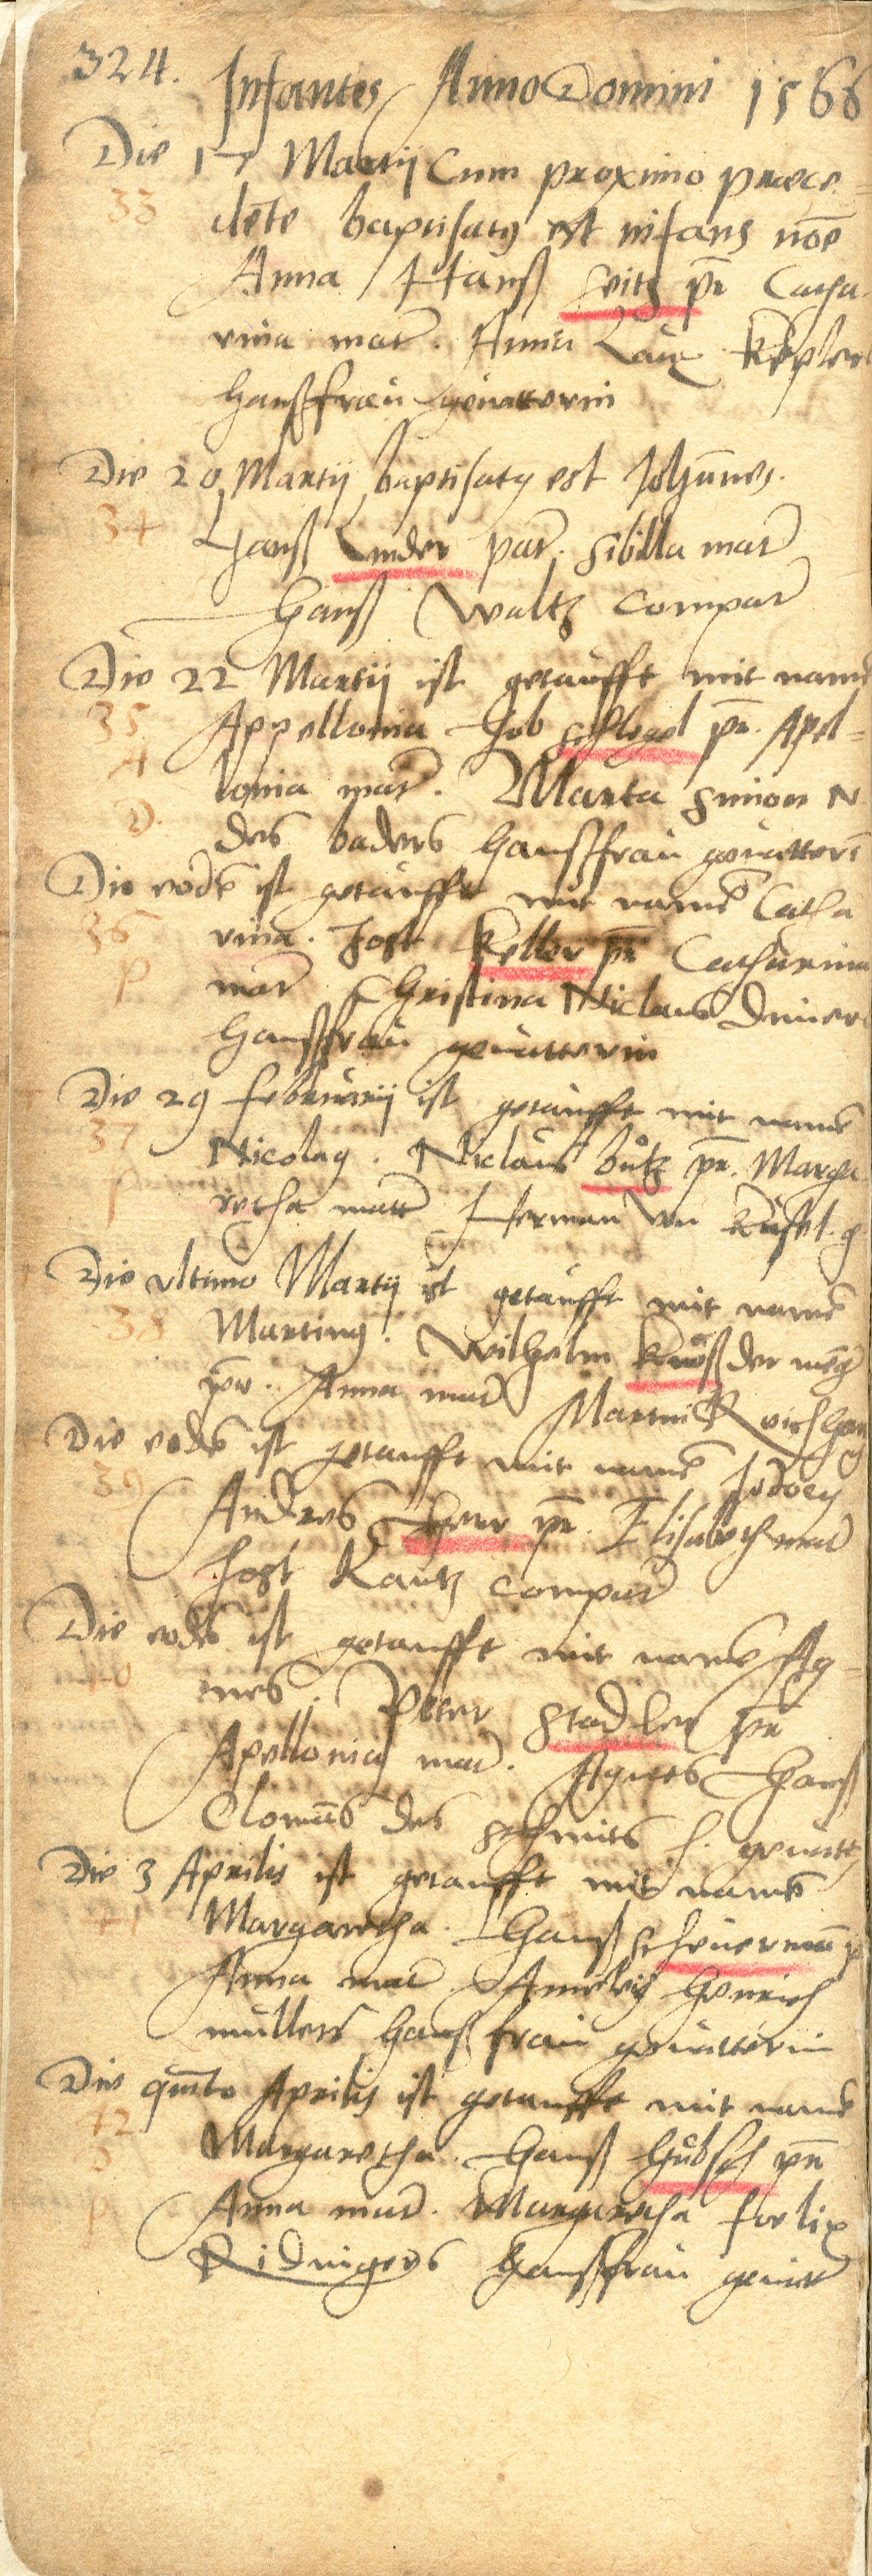 324. Infantes Anno Domini 1566
Die 17 Martij Cum proximo præce=
33
dēte baptisatus est infans nōe
Anna Hanß Veitz pr̄ Catha
rina mat̄. Anna Laux Kepler
haußfrau gevatterin
Die 20 Martij baptisatus est Johānnes.
34
Hanß Linder pat̄. Sibilla mat̄
Hanß Waltz compat̄
Die 22 Martij ist getaufft mit namē
35
Appellonia Job Schlegel pr̄. Apel=
A
lonia mat̄. Marta Simon N
D.
des baders haußfrau gevatterī
Die eodē ist getaufft mit namē Catha
36
rina. Jost Keller pr̄ Catharina
P
mat̄ Christina Niclaus
haußfrau gevatterin
Die 29 februarij ist getaufft mit namē
37
Nicolaus. Niclaus butz pr̄. Marga
P
retha matt̄ Herman von Kusel. g
Die vltimo Martij ist getaufft mit namē
38
Martinus. Wilhelm der
pr̄. Anna mat̄ Martin
Die eodē ist getaufft mit namē Jodocus
39
Andres Herr pr̄. Elisabeth mat̄
Jost Kautz compat̄
Die eodē ist getaufft mit namē Ag=
40
nes. Peter Stadler pr̄
Apellonia mat̄. Agnes Hanß
Clomās des Schmits h. gevatt
Die 3 Aprilis ist getaufft mit namē
41
Margaretha. Hanß Scheuermā p
Anna mat̄ Henrich
mullers hauß frau gevatterin
Die quīto Aprilis ist getaufft mit namē
42
Margaretha. Hanß hubsch pr̄
P
Anna mat̄. Margaretha foelix
Ridingers haußfrau gevatt̄